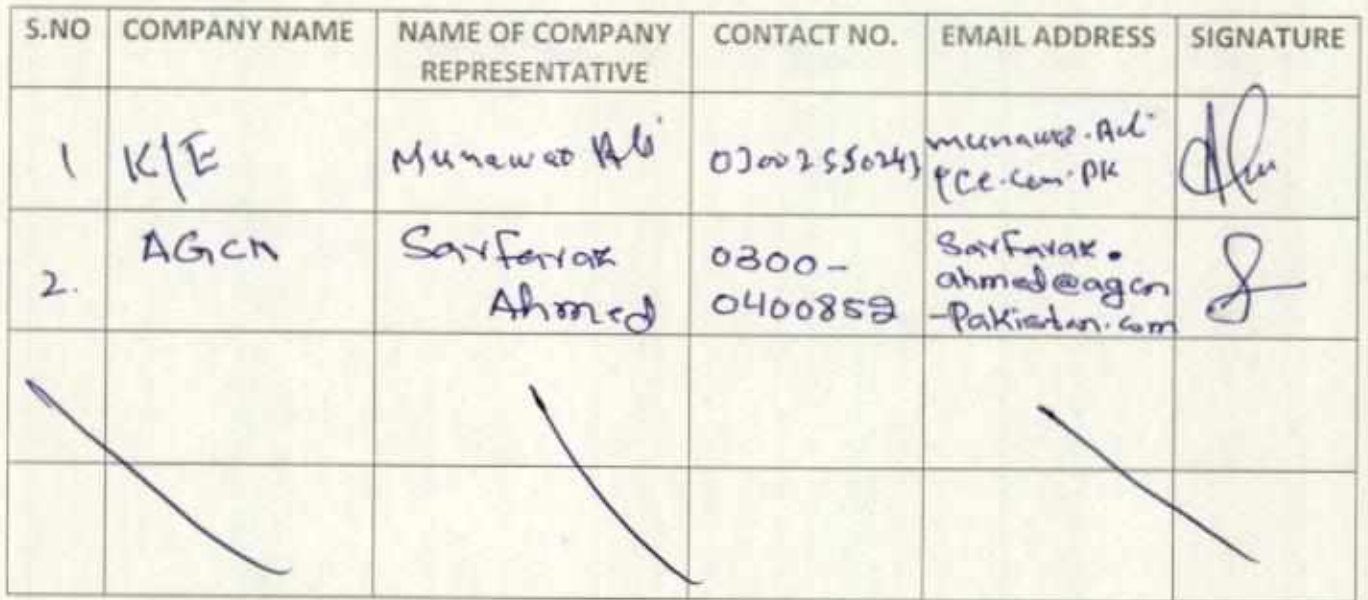 S.NO COMPANY NAME NAME OF COMPANY REPRESENTATIVE CONTACT NO. EMAIL ADDRESS SIGNATURE
1 K/E Munawar Ali
2. AGCN Sarfaraz Ahmed 0300-0400852 Sarfaraz.ahmed@agcn-Pakistan.com